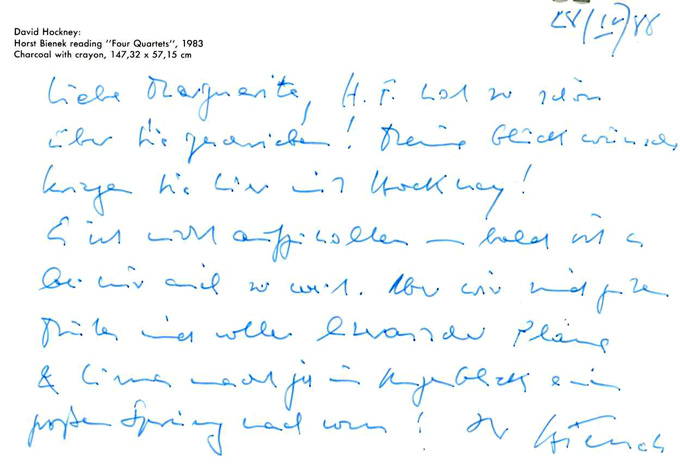 David Hockney:
Horst Bienek reading "Four Quartets", 1983
Charcoal with crayon, 147,32 x 57,15 cm
28/10/88
Liebe Marguerite, H. F. hat so schön
über Sie geschrieben! Meine Glückwünsche
kriegen Sie hier mit Hockney!
Es ist nicht aufzuhalten – bald ist es
bei mir auch so weit. Aber wir sind guten
Mutes und voller Pläne
& macht ja im Augenblick einen
großen Sprung nach vorn! Ihr HBienek